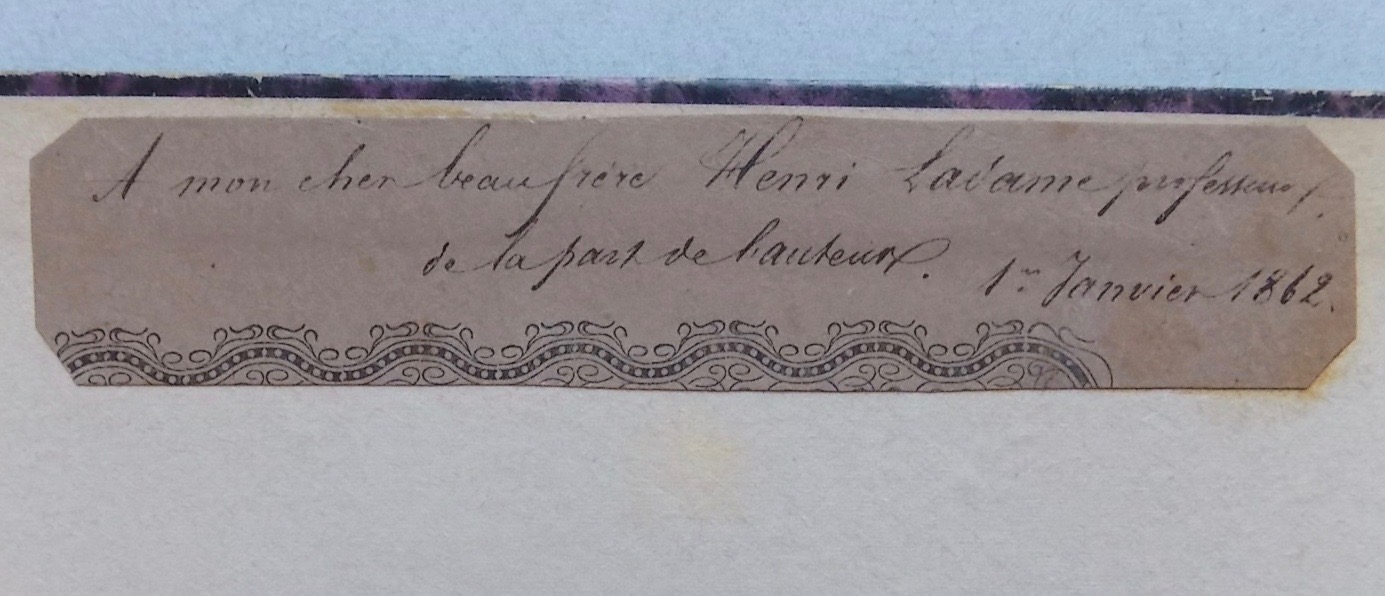 A mon cher beau frère Henri Ladame professeur.
de la part de l'auteur.
1er Janvier 1862.